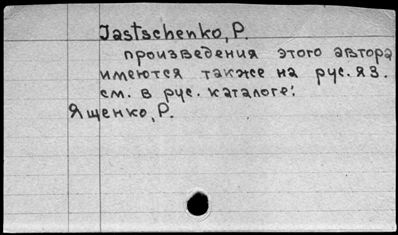 Jastschenko, P.
произведения этого автора
имеются также на рус. яз.
см. в рус. каталоге:
Ященко, Р.